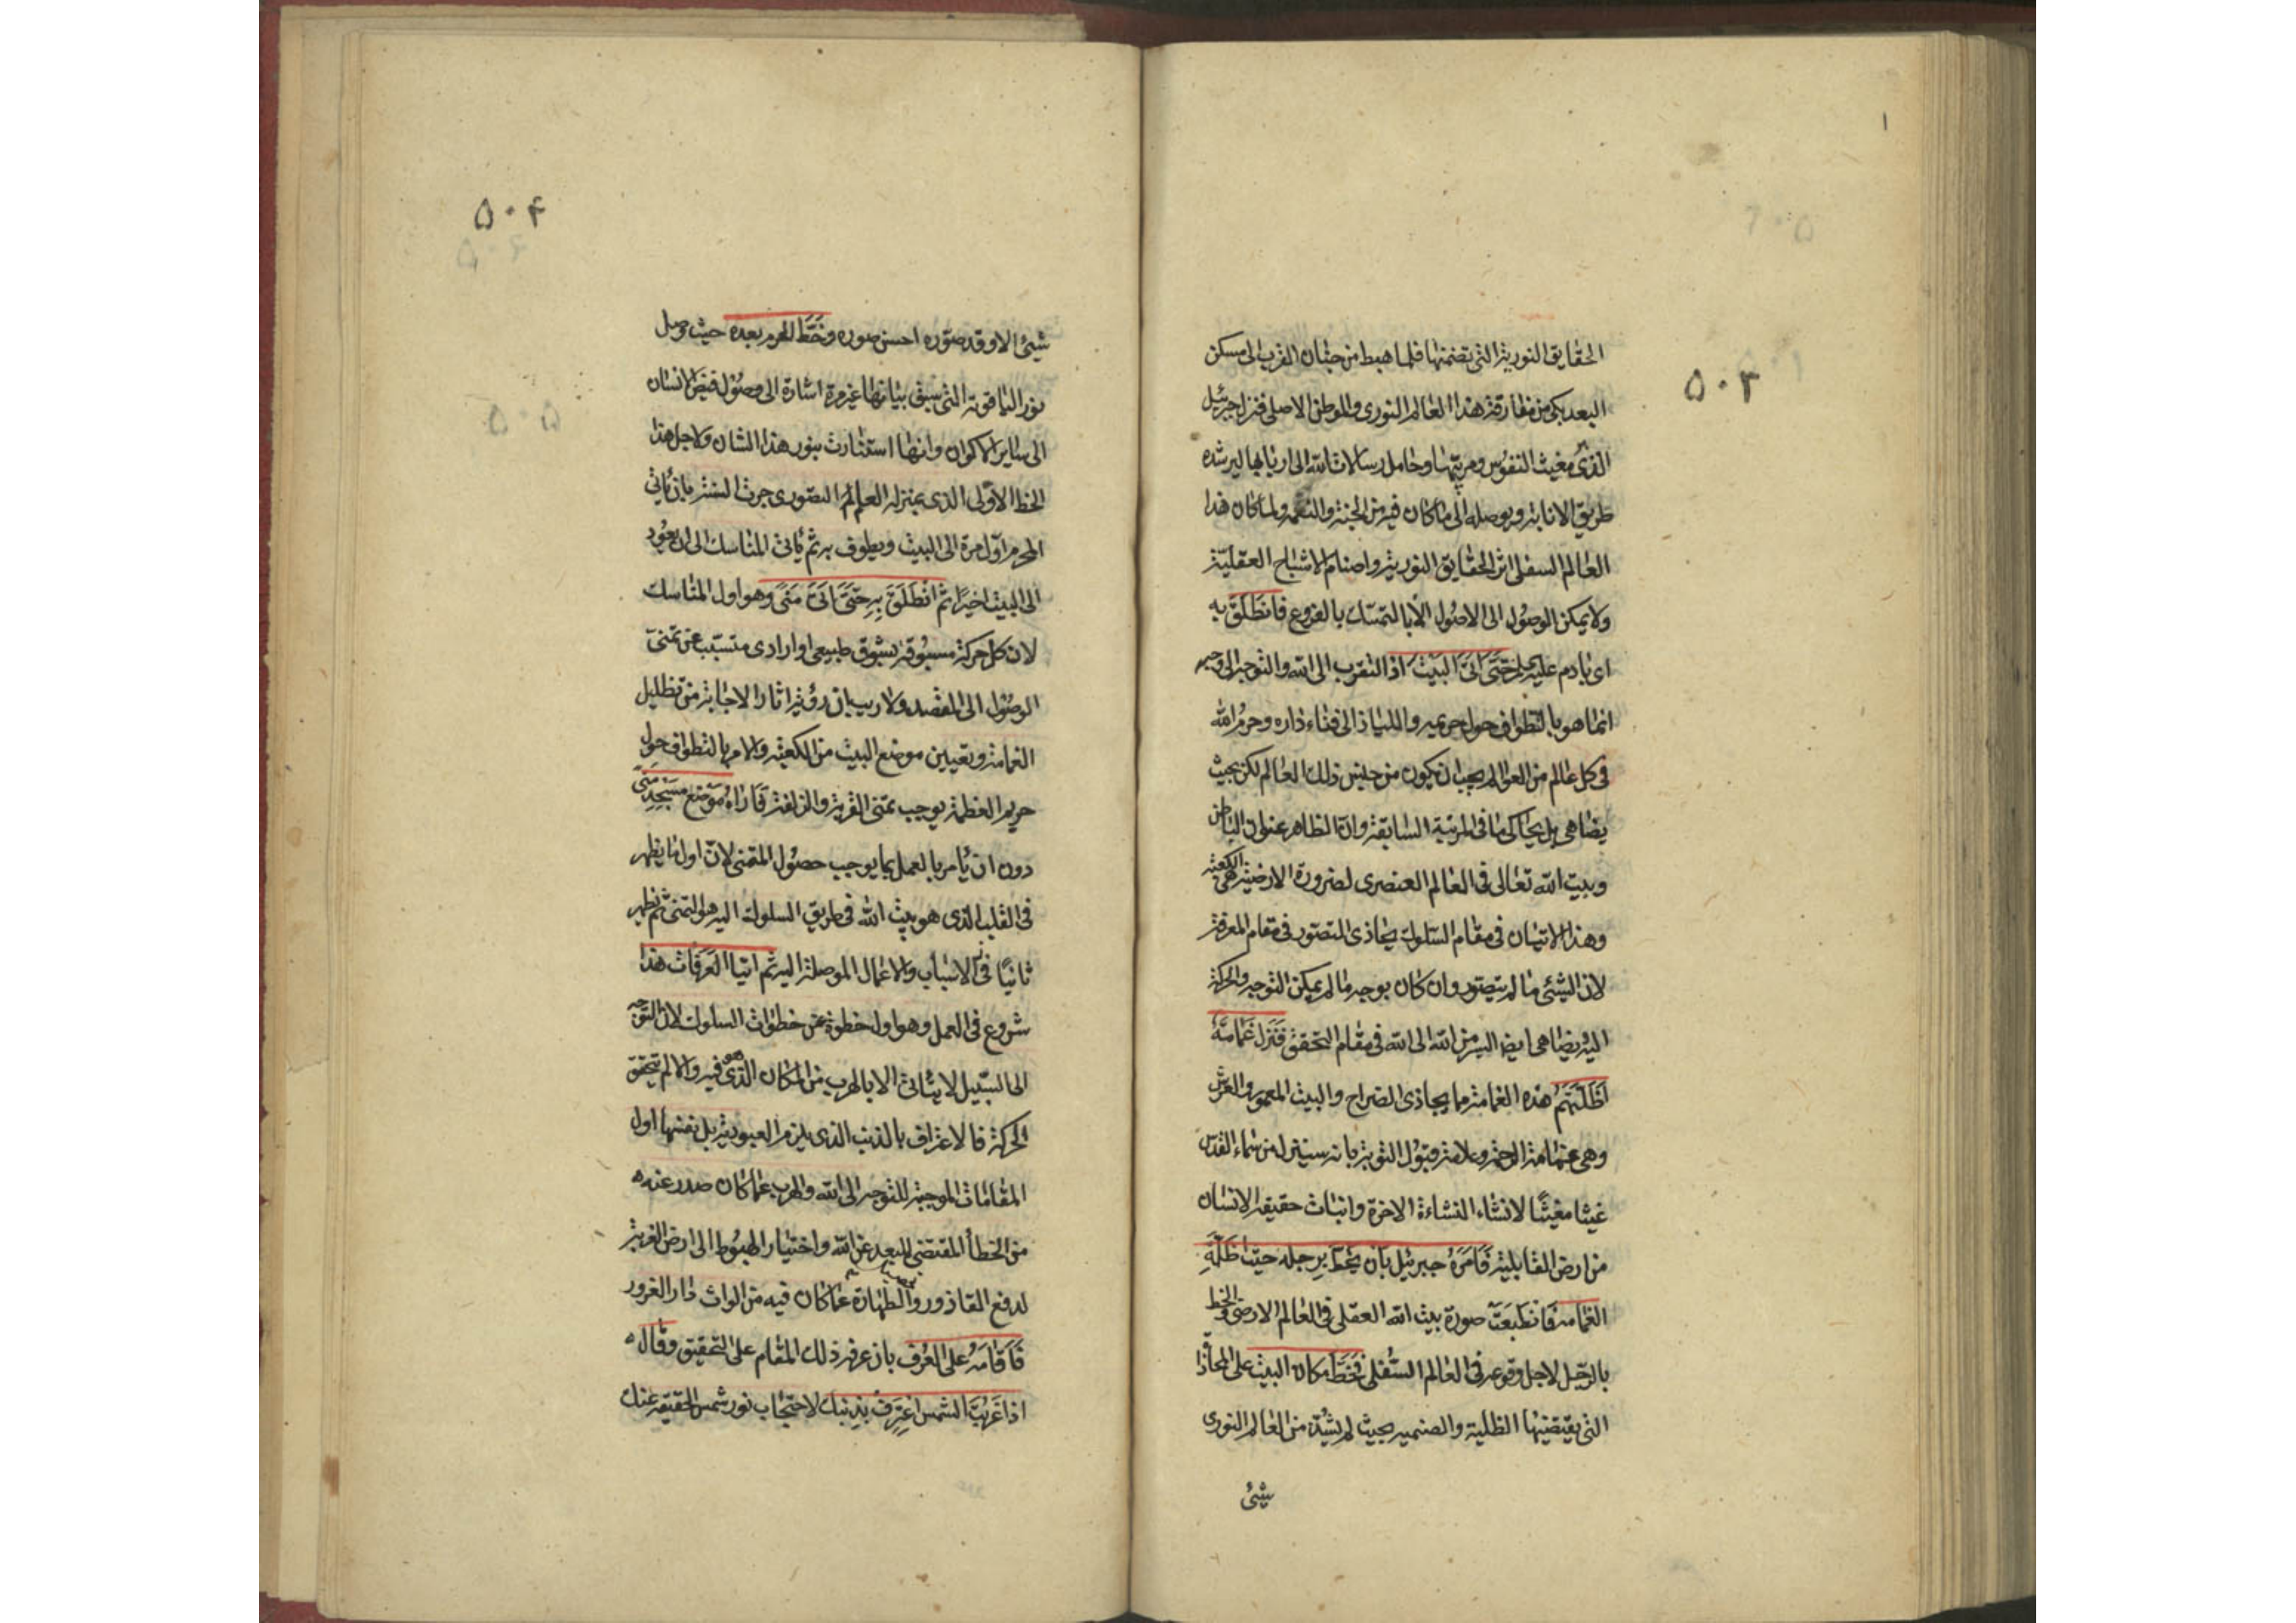 ۱
۵۰۳
الحقایق النوریة التی تضمنتها فلما هبط من جنان القرب الی مسکن
البعد بکی من مفارقة هذا العالم النوری والموطن الاصلی فنزل جبرئیل
الذی مغیث النفوس ومربیها وحامل رسالات الله الی اربابها لیرشده
طریق الانابة ویوصله الی ما کان فیه من الجنة والنعمة ولما کان هذا
العالم السفلی اثر الحقایق النوریة واصنام الاشباح العقلیّة
ولا یمکن الوصول الی الاصول الا بالتمسّک بالفروع فانطَلَقَ به
ای بادم علیه حَتّی اَتیَ البَیتَ اذ التقرب الی الله والتوجه الی وجهه
انما هو بالتطواف حول حریمه واللیاذ الی فناء داره وحرمُ الله
فی کل عالم من العوالم یجب ان یکون من جنس ذلک العالم لکن بحیث
یضاهی بل یحاکی ما فی المرتبة السابقة وانّ الظاهر عنوان الباطن
وبیت الله تعالی فی العالم العنصری لضرورة الارضیة هی الکعبة
وهذا الاتیان فی مقام السّلوک یحاذی التصور فی مقام المعرفة
لان الشیئ ما لم یتصور وان کان بوجه ما لم یمکن التوجه والحرکة
الیه ویضاهی ایضا السیر من الله الی الله فی مقام التحقق فَنَزَل غَمامَةٌ
اَظَلَّتهُم هذه الغمامة مما یحاذی الضراح والبیت المعمور والعرش
وهی غمامة الرحمة وعلامة قبول التوبة بانه سینزل من سماء القدس
غیثا مغیثًا لانشاء النشاءة الاخرة وانبات حقیقة الانسان
من ارض القابلیة فَاَمَرَهُ جبرئیل بِاَن یَخُطَّ بِرِجله حیث اَظَلَّهِ
الغمامة فَانطَبَعَت صورة بیت الله العقلی فی العالم الارضی والخط
بالرّجل لاجل وقوعه فی العالم السّفلی فَخَطَّ مکان البیت علی المحاذاة
التی یقتضیها الظلیة والصنمیه بحیث لم یشذّ من العالم النوری
شیئ
۵۰۴
شیئ الا وقد صوّره احسن صوره وخَطَّ الحرم بعده حیث وصل
نور الیاقوتة التی سبق بیانها غیر مرة اشارة الی وصول فیض الانسان
الی سایر الاکوان وانها استنارت بنور هذا الشان ولاجل هذا
الخط الاوّلی الذی بمنزلة العالم التصوری جرت السنة بان یأتی
المحرم اوّل مرة الی البیت ویطوف به ثم یأتی المناسک الی ان یعُود
الی البیت اخیرًا ثمّ انطَلَقَ بِهِ حَتّیٰ اَتیٰ مَنیً وهو اول المناسک
لان کل حرکة مسبُوقة بشوق طبیعی او ارادی متسبّب عن تمنّی
الوصُول الی المقصد ولا ریب بان رؤیة اثار الاجابة من تظلیل
الغمامة وتعیین موضع البیت من الکعبة والامر بالتطواف حول
حریم العظمة یوجب تمنی القربة والزلفة فَاَراهُ مَوضِعَ مَسجِدِ مَنیً
دون ان یأمر بالعمل بما یوجب حصُول المتمنی لانّ اول ما یظهر
فی القلب الذی هو بیت الله فی طریق السلوک الیه هو التمنی ثم یظهر
ثانیًا فی الاسباب والاعمال الموصلة الیه ثم اتیا العَرَفات هذا
شروع فی العمل وهو اول خطوة من خطوات السلوک لان التوجه
الی السّبیل لا یتأتی الا بالهرب من المکان الذی هو فیه والا لم یتحقق
الحرکة فالاعتراف بالذنب الذی یلزم العبودیة بل نفسها اول
المقامات الموجبة للتوجه الی الله والهرب عما کان صدر عنه
من الخطأ المقتضی للبعد عن الله واختیار الهبُوط الی ارض الغربة
لدفع القاذورو والطهارة عما کان فیه من الواث دار الغرور
فَاَقامَهُ علی العُرف بان عرفه ذلک المقام علی التحقیق وقال
اذا غَرَبَتِ الشمس اعتَرِف بِذنبک لاحتجاب نور شمس الحقیقة عنک